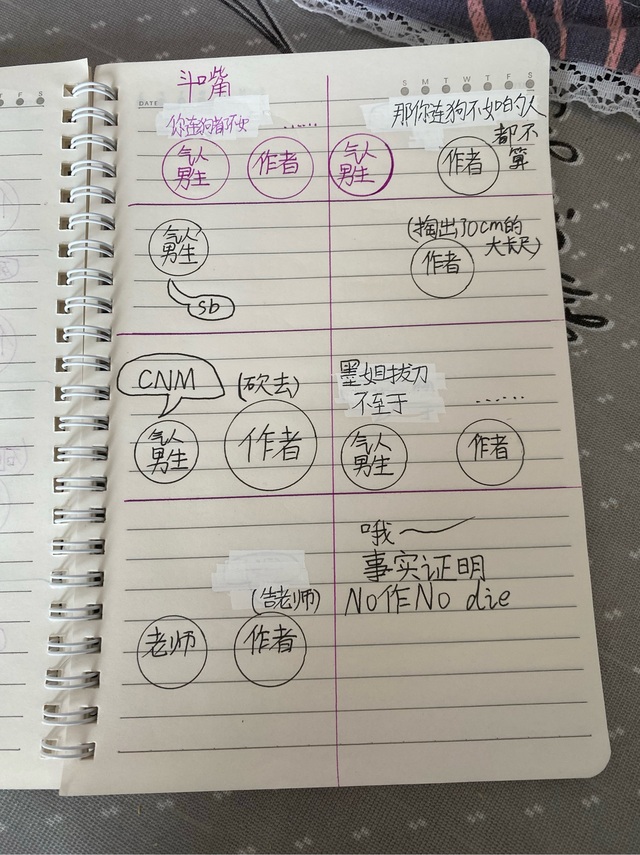 DATE
S M T W T F S
斗嘴
你连狗都不如
......
气人
男生
作者
那你连狗不如的人
都不
算
气人
男生
作者
气人
男生
sb
(掏出70cm的
大卡尺)
作者
CNM
(砍去)
气人
男生
作者
墨姐拔刀
不至于
......
气人
男生
作者
(告老师)
老师
作者
哦
事实证明
No作No die